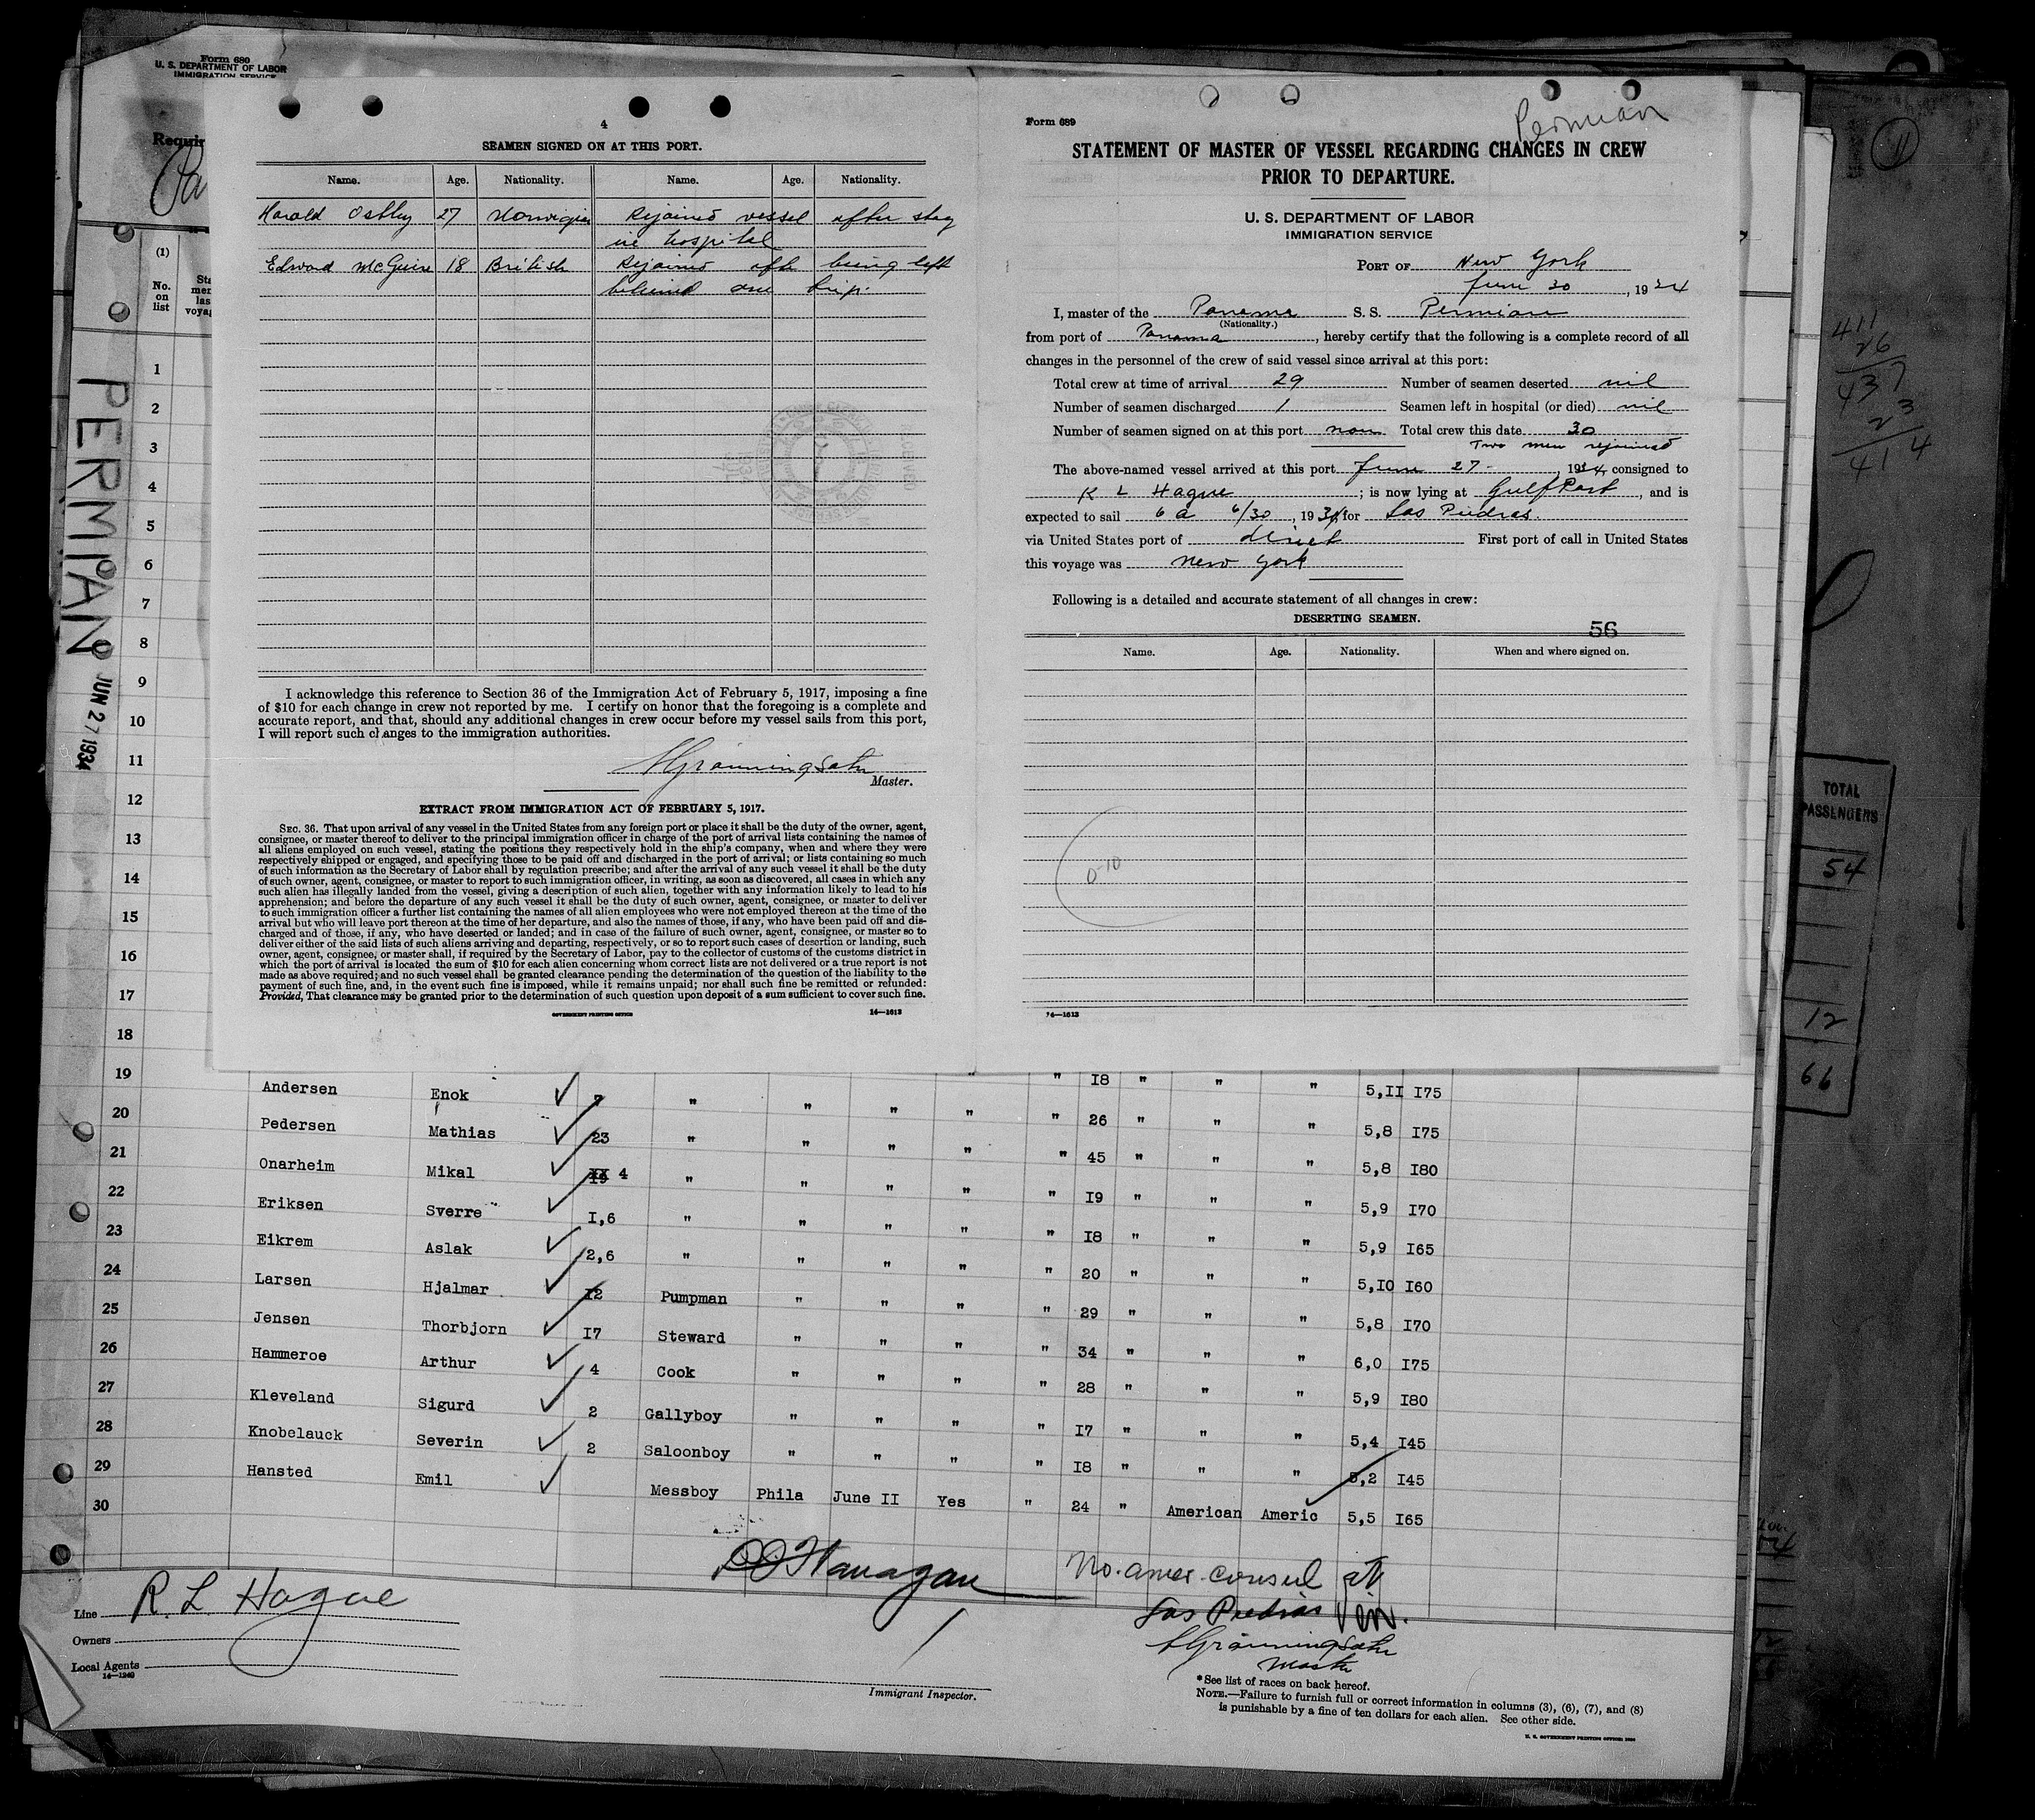 Form 680
U. S. DEPARTMENT OF LABOR
IMMIGRATION SERVICE
(1)
No. on list
PERMIAN
JUN 27 1934
4
SEAMEN SIGNED ON AT THIS PORT.
Name. Age. Nationality. Name. Age. Nationality.
Harald 27 Norwigian Rejoined vessel after stay
in hospital
Edward McGuire 18 British Rejoined after being left
behind one trip.
I acknowledge this reference to Section 36 of the Immigration Act of February 5, 1917, imposing a fine
of $10 for each change in crew not reported by me. I certify on honor that the foregoing is a complete and
accurate report, and that, should any additional changes in crew occur before my vessel sails from this port,
I will report such changes to the immigration authorities.
Master.
EXTRACT FROM IMMIGRATION ACT OF FEBRUARY 5, 1917.
SEC. 36. That upon arrival of any vessel in the United States from any foreign port or place it shall be the duty of the owner, agent,
consignee, or master thereof to deliver to the principal immigration officer in charge of the port of arrival lists containing the names of
all aliens employed on such vessel, stating the positions they respectively hold in the ship's company, when and where they were
respectively shipped or engaged, and specifying those to be paid off and discharged in the port of arrival; or lists containing so much
of such information as the Secretary of Labor shall by regulation prescribe; and after the arrival of any such vessel it shall be the duty
of such owner, agent, consignee, or master to report to such immigration officer, in writing, as soon as discovered, all cases in which any
such alien has illegally landed from the vessel, giving a description of such alien, together with any information likely to lead to his
apprehension; and before the departure of any such vessel it shall be the duty of such owner, agent, consignee, or master to deliver
to such immigration officer a further list containing the names of all alien employees who were not employed thereon at the time of the
arrival but who will leave port thereon at the time of her departure, and also the names of those, if any, who have been paid off and dis-
charged and of those, if any, who have deserted or landed; and in case of the failure of such owner, agent, consignee, or master so to
deliver either of the said lists of such aliens arriving and departing, respectively, or so to report such cases of desertion or landing, such
owner, agent, consignee, or master shall, if required by the Secretary of Labor, pay to the collector of customs of the customs district in
which the port of arrival is located the sum of $10 for each alien concerning whom correct lists are not delivered or a true report is not
made as above required; and no such vessel shall be granted clearance pending the determination of the question of the liability to the
payment of such fine, and, in the event such fine is imposed, while it remains unpaid; nor shall such fine be remitted or refunded:
Provided, That clearance may be granted prior to the determination of such question upon deposit of a sum sufficient to cover such fine.
GOVERNMENT PRINTING OFFICE 14—1613
Form 689
Permian
STATEMENT OF MASTER OF VESSEL REGARDING CHANGES IN CREW
PRIOR TO DEPARTURE.
U. S. DEPARTMENT OF LABOR
IMMIGRATION SERVICE
PORT OF New York
June 30, 1934
I, master of the Panama S. S. Permian
(Nationality.)
from port of Panama, hereby certify that the following is a complete record of all
changes in the personnel of the crew of said vessel since arrival at this port:
Total crew at time of arrival 29 Number of seamen deserted nil
Number of seamen discharged 1 Seamen left in hospital (or died) nil
Number of seamen signed on at this port non Total crew this date 30
Two men rejoined
The above-named vessel arrived at this port June 27, 1934, consigned to
R L Hague; is now lying at Gulf Port, and is
expected to sail 6 a 6/30, 1934, for Las Piedras.
via United States port of direct First port of call in United States
this voyage was New York
Following is a detailed and accurate statement of all changes in crew:
DESERTING SEAMEN.
56
Name. Age. Nationality. When and where signed on.
14—1613
11
411
26
437
23
414
TOTAL
PASSENGERS
54
12
66
1
2
3
4
5
6
7
8
9
10
11
12
13
14
15
16
17
18
19 Andersen Enok 7 " " " " " 18 " " " 5,II I75
20 Pedersen Mathias 23 " " " " " 26 " " " 5,8 I75
21 Onarheim Mikal 4 " " " " " 45 " " " 5,8 I80
22 Eriksen Sverre I,6 " " " " " I9 " " " 5,9 I70
23 Eikrem Aslak 2,6 " " " " " I8 " " " 5,9 I65
24 Larsen Hjalmar I2 Pumpman " " " " 20 " " " 5,I0 I60
25 Jensen Thorbjorn I7 Steward " " " " 29 " " " 5,8 I70
26 Hammeroe Arthur 4 Cook " " " " 34 " " " 6,0 I75
27 Kleveland Sigurd 2 Gallyboy " " " " 28 " " " 5,9 I80
28 Knobelauck Severin 2 Saloonboy " " " " I7 " " " 5,4 I45
29 Hansted Emil Messboy Phila June II Yes " I8 " " " 5,2 I45
30 24 " American Americ 5,5 I65
No. amer. consul at
Las Piedras Ven.
Master
Line R. L. Hague
Owners
Local Agents
14—1240
Immigrant Inspector.
*See list of races on back hereof.
NOTE.—Failure to furnish full or correct information in columns (3), (6), (7), and (8)
is punishable by a fine of ten dollars for each alien. See other side.